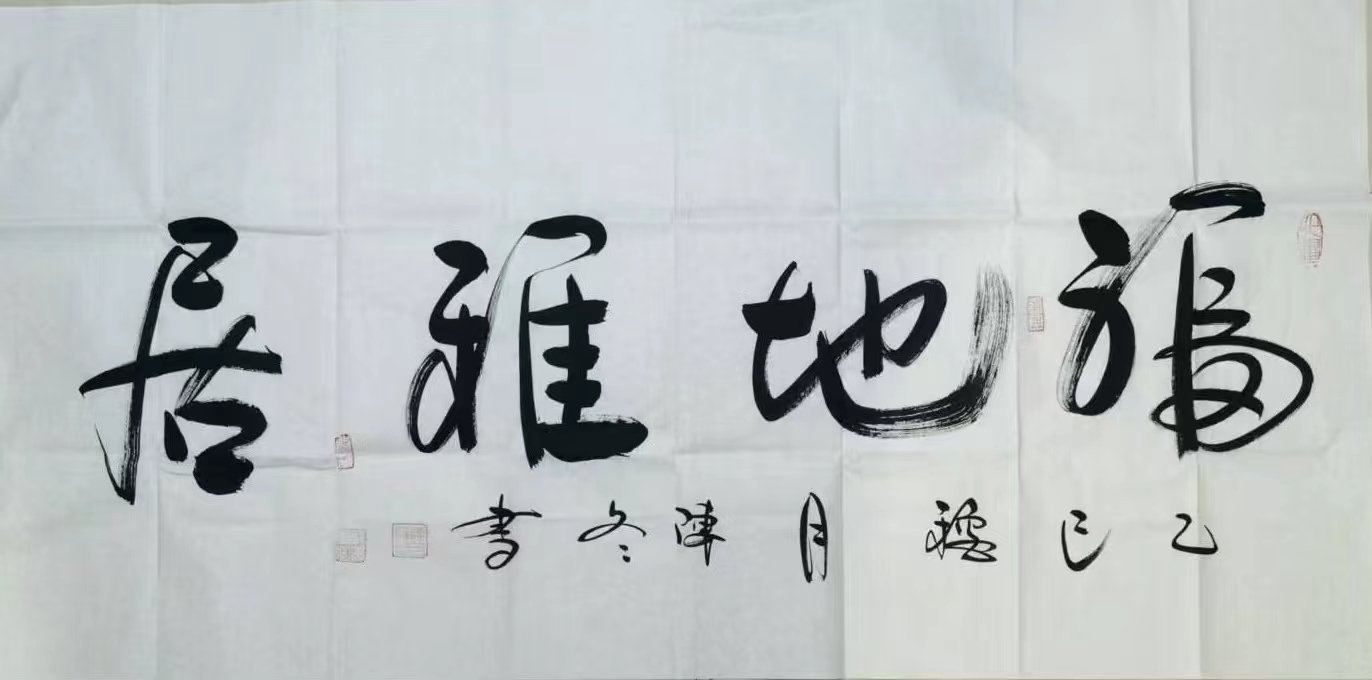 福地雅居
乙巳月陳冬書